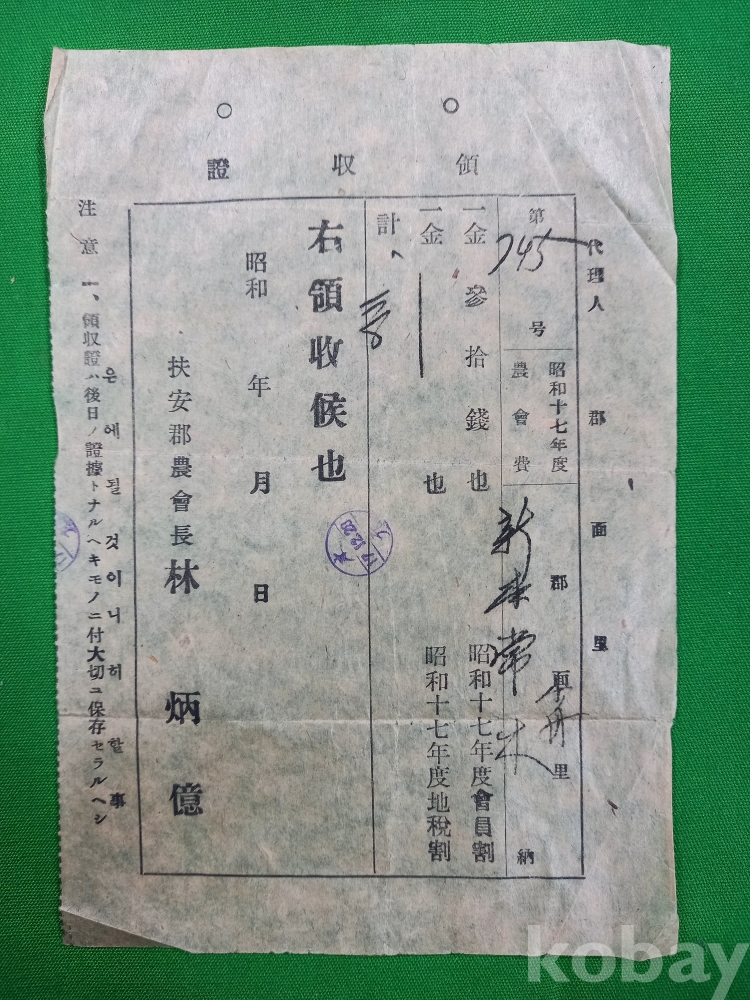 領収證
代理人 郡 面 里
昭和十七年度
農會費
第745号
郡 面 里 納
一金參拾錢也 昭和十七年度會員割
一金 也 昭和十七年度地稅割
計
右領收候也
昭和 年 月 日
17.12.20
扶安郡農會長 林 炳億
은에될것이니히할事
注意 一、領収證ハ後日ノ證據トナルヘキモノニ付大切ニ保存セラルヘシ
kobay